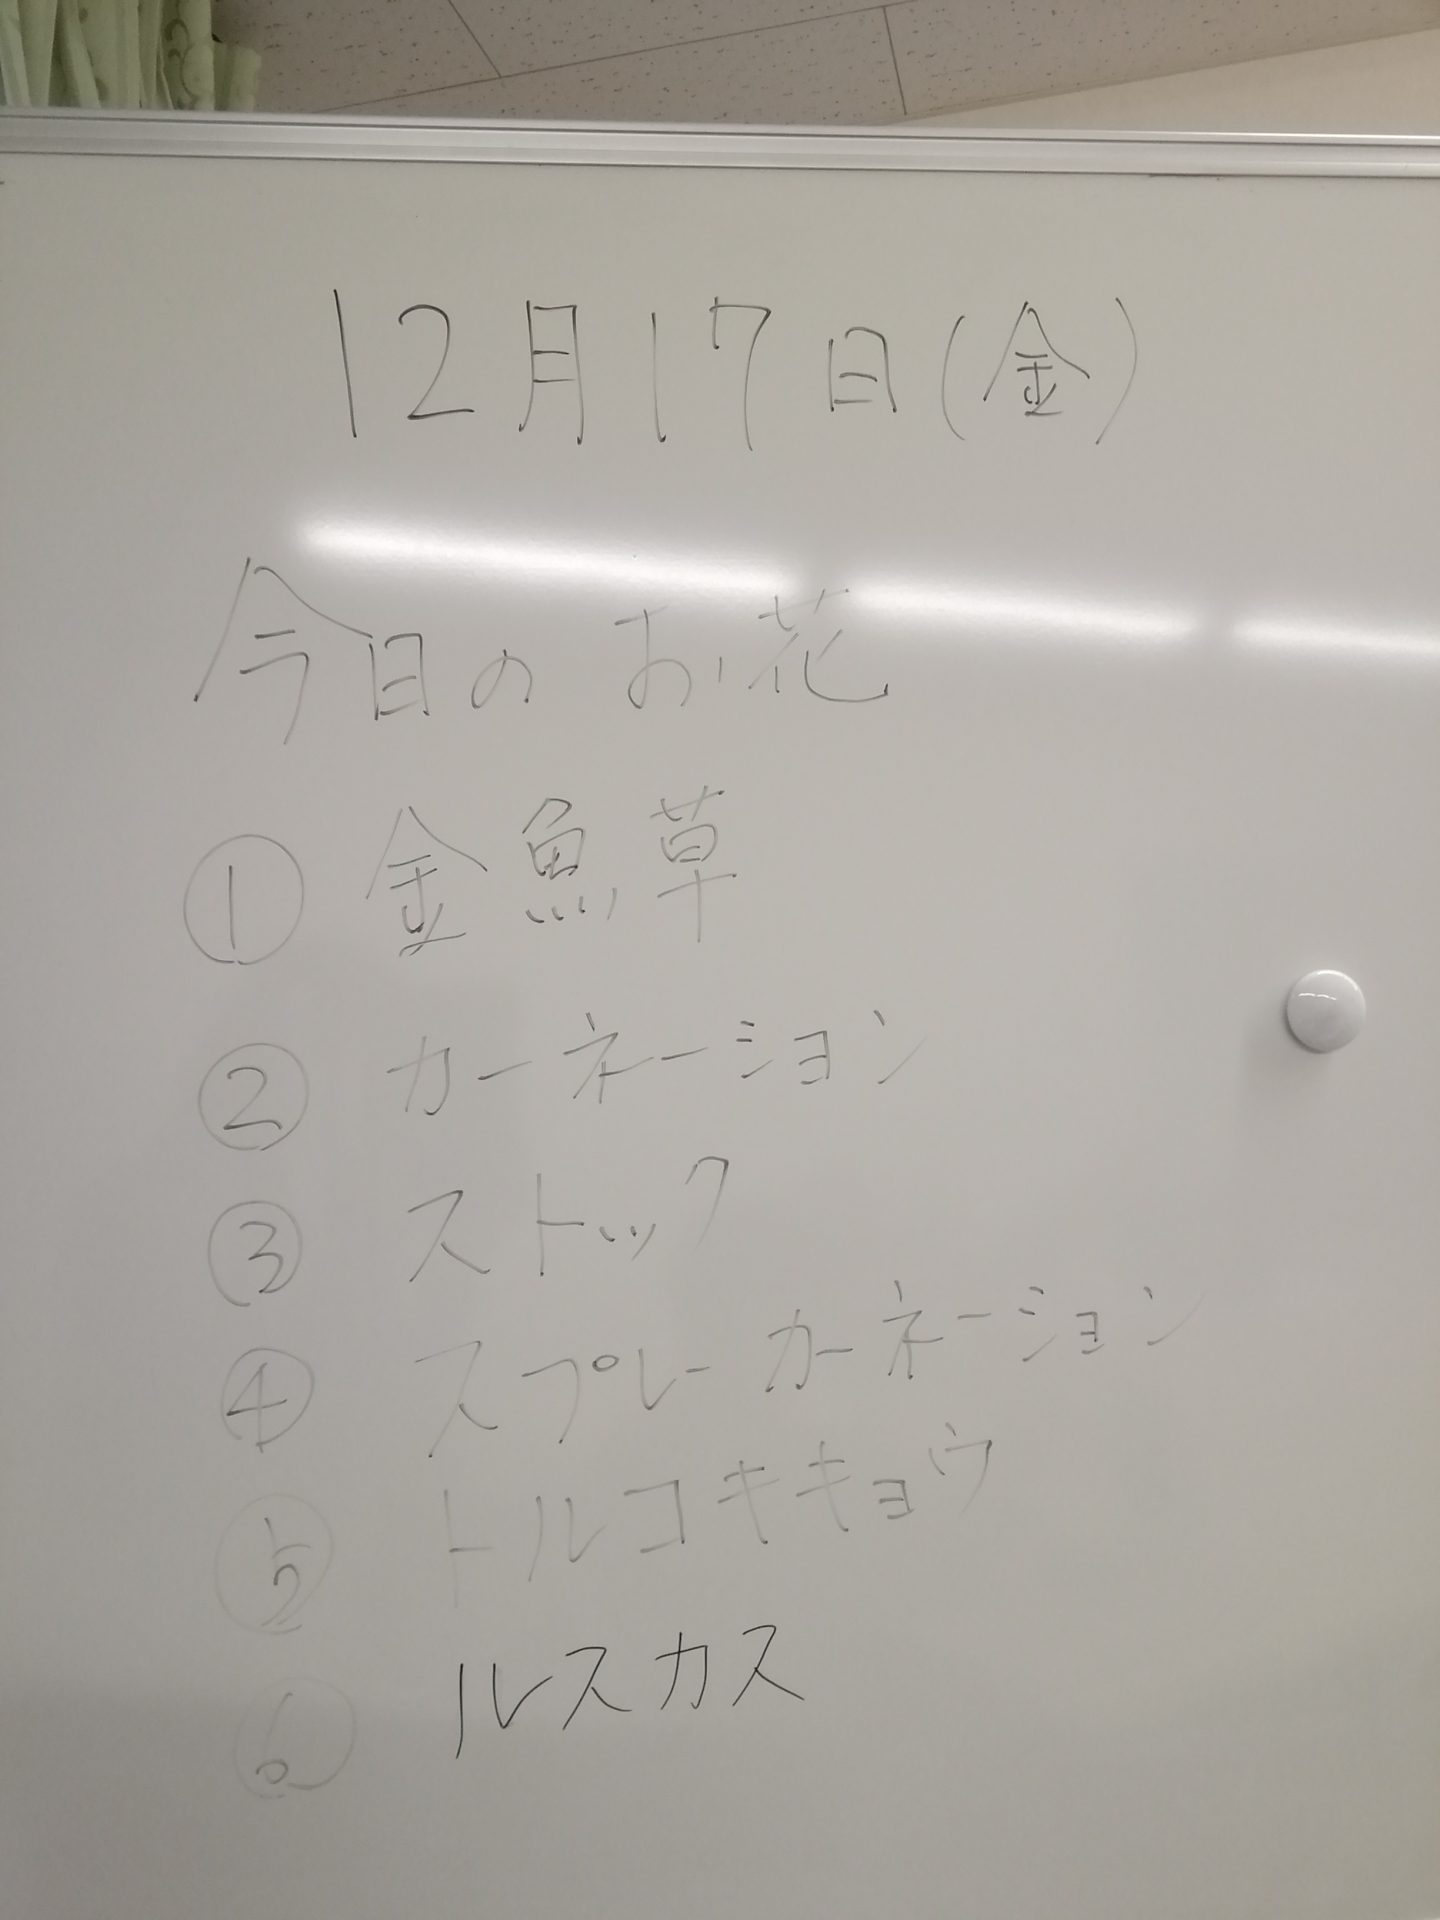 12月17日(金)
今日のお花
① 金魚草
② カーネーション
③ ストック
④ スプレーカーネーション
⑤ トルコキキョウ
⑥ ルスカス